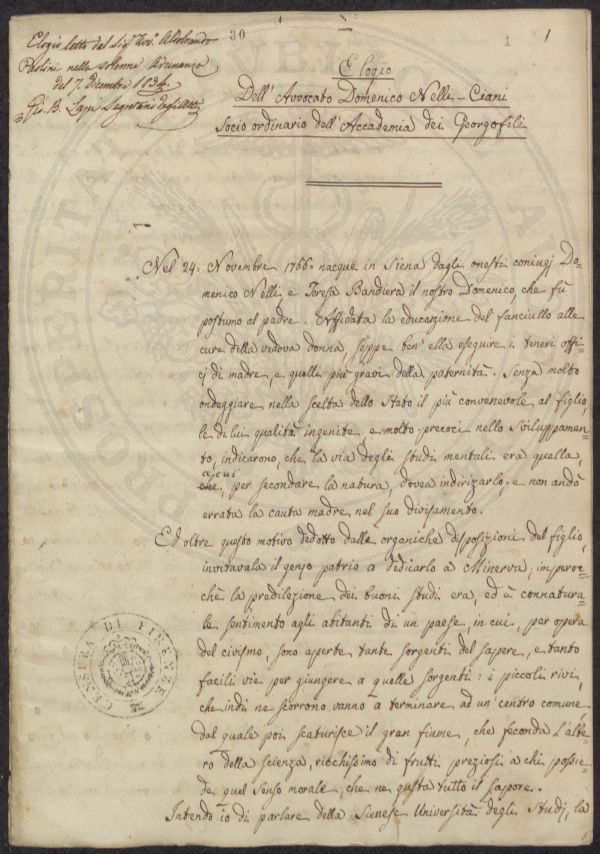 Elogio letto dal Sigr. Avv. Aldobrando
Paolini nella solenne Adunanza
del 7. Dicembre 1834.
Gio. B. Lapi Segretario degli Atti
30
1
1
Elogio
Dell' Avvocato Domenico Nelli-Ciani
Socio ordinario dell' Accademia dei Georgofili
Nel 24: Novembre 1766. nacque in Siena dagli onesti coniugj Do-
menico Nelli, e Teresa Bandiera il nostro Domenico, che fù
postumo al padre. Affidata la educazione del fanciullo alle
cure della vedova donna, seppe ben' ella eseguire i teneri offi-
cj di madre, e quelli più gravi della paternità. Senza molto
ondeggiare nella scelta dello Stato il più convenevole al figlio,
le di lui qualità ingenite, e molto precoci nello Sviluppamen-
to, indicarono, che la via degli Studi mentali era quella,
a cui
che, per secondare la natura, dovea indirizarlo; e non andò
errata la cauta madre nel suo divisamento.
Ed oltre questo motivo dedotto dalle organiche disposizioni del figlio,
invitavala il genio patrio a dedicarlo a Minerva; imperoc-
chè la predilezione dei buoni Studi era, ed è connatura-
le sentimento agli abitanti di un paese, in cui, per opera
del civismo, sono aperte tante sorgenti del sapere, e tanto
facili vie per giungere a quelle sorgenti: i piccoli rivi,
che indi ne scorrono vanno a terminare ad un' centro comune
dal quale poi scaturisce il gran fiume, che feconda l'albe-
ro della scienza, ricchissimo di frutti preziosi a chi possie-
de quel Senso morale, che ne gusta tutto il sapore.
Intendo io di parlare della Sienese Università degli Studj, la
CENSURA DI FIRENZE
PROSPERITATI